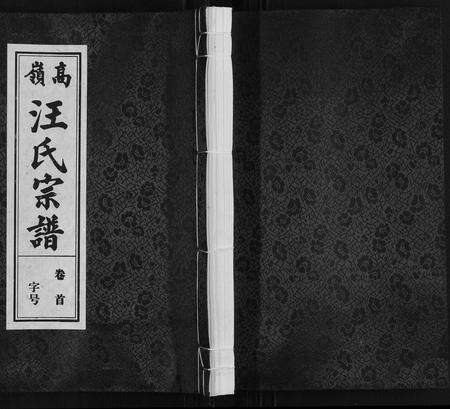 高嶺
汪氏宗譜
卷首
字号